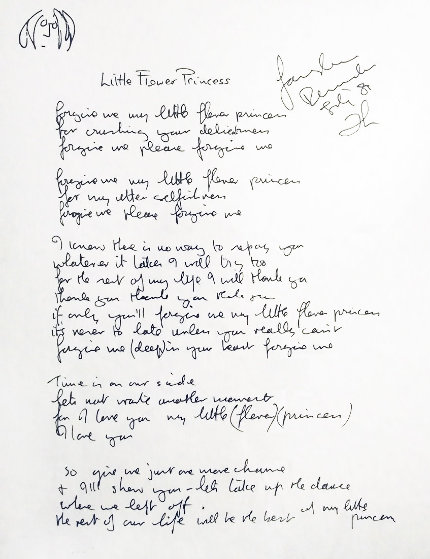 Little Flower Princess
Fairylands
Bermuda
July 80
forgive me my little flower princess
for crushing your delicateness
forgive me please forgive me
forgive me my little flower princess
for my utter selfishness
forgive me please forgive me
I know there is no way to repay you
whatever it takes I will try too
for the rest of my life I will thank you
thank you thank you thank you
if only you'll forgive me my little flower princess
it's never to late unless you really can't
forgive me (deep) in your heart forgive me
Time is on our side
lets not waste another moment
for I love you my little (flower) (princess)
I love you
so give me just one more chance
+ I'll show you - lets take up the dance
where we left off.
the rest of our life will be the best of my little princess